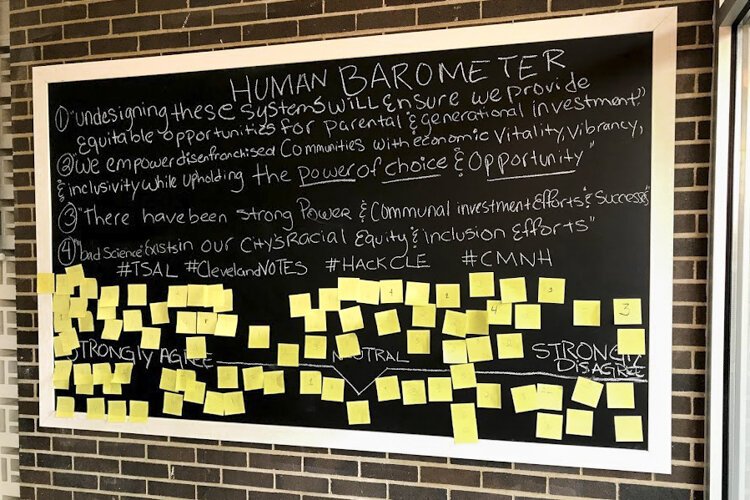 HUMAN BAROMETER
① "Undesigning these systems will ensure we provide
Equitable opportunities for parental & generational investment."
② "We empower disenfranchised Communities with economic Vitality, Vibrancy,
& inclusivity while upholding the power of choice & Opportunity"
③ "There have been strong Power & Communal investment Efforts & Successes"
④ "Bad Science Exists in our City's Racial Equity & inclusion Efforts"
#TSAL #ClevelandVOTES #HACKCLE #CMNH
STRONGLY AGREE NEUTRAL STRONGLY
DISAGREE